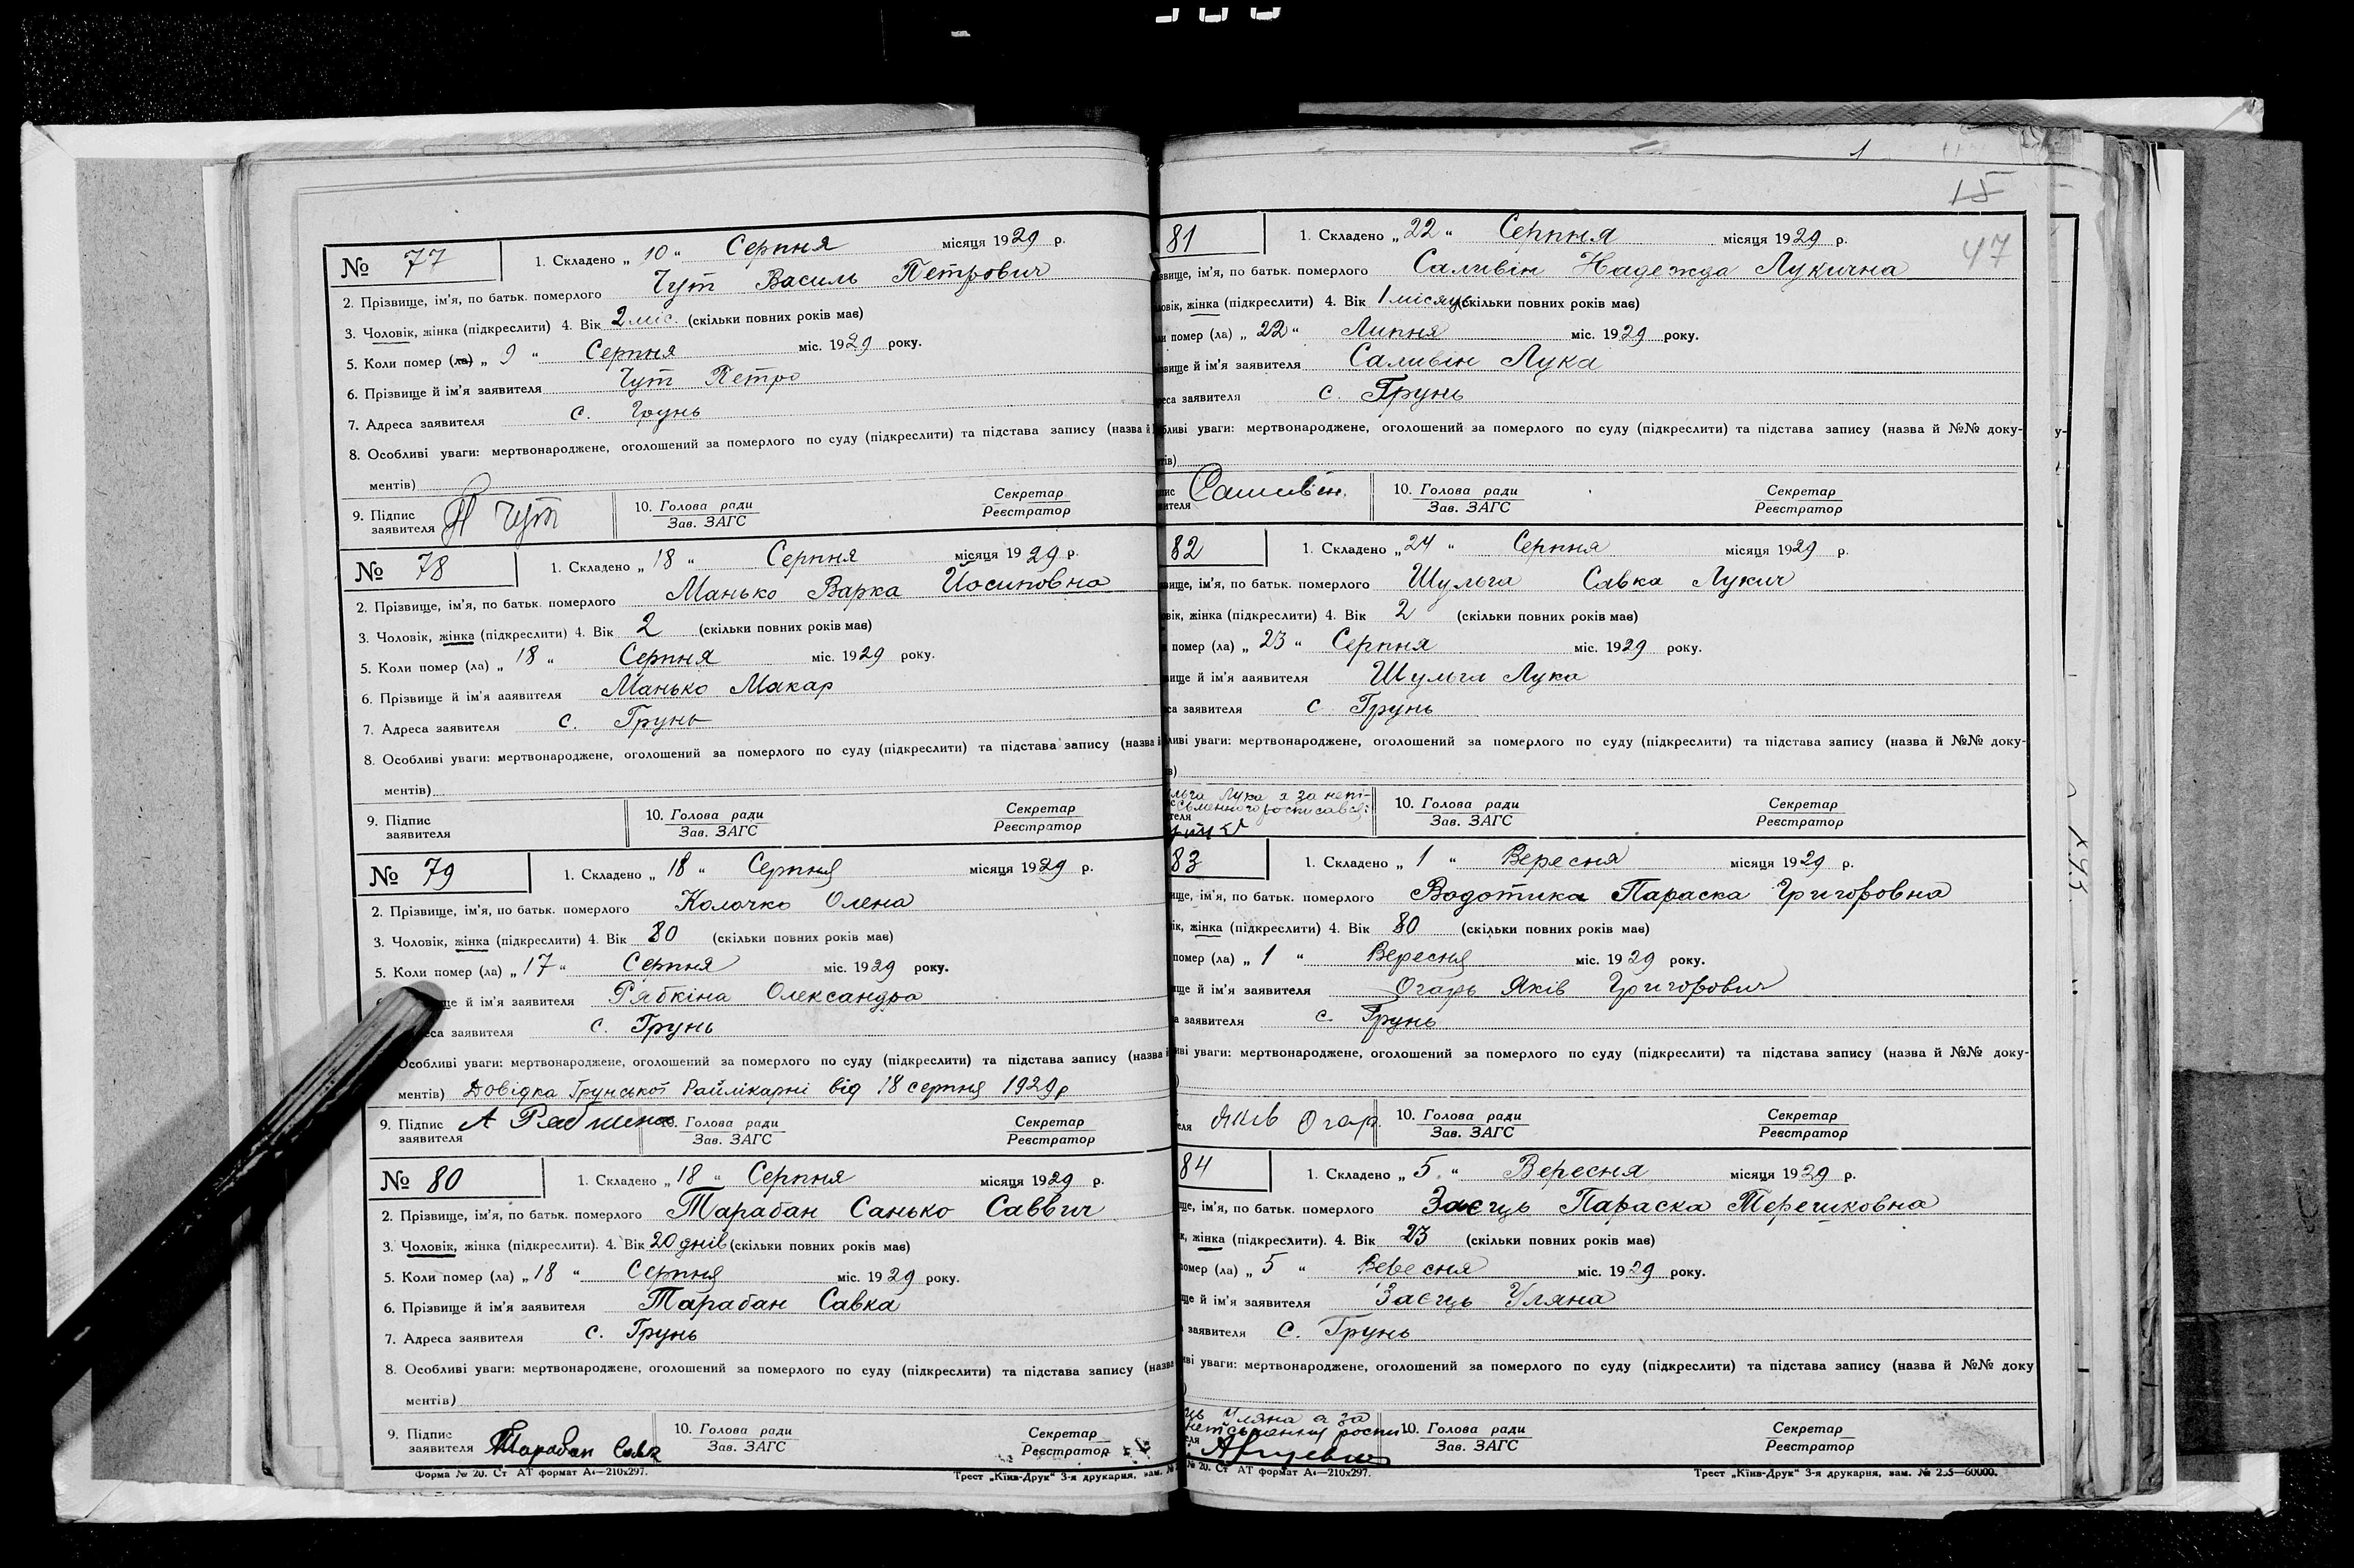 № 77
1. Складено „ 10 “ Серпня місяця 1929 р.
2. Прізвище, ім'я, по батьк. померлого Чут Василь Петрович
3. Чоловік, жінка (підкреслити) 4. Вік 2 міс. (скільки повних років має)
5. Коли помер (ла) „ 9 “ Серпня міс. 1929 року.
6. Прізвище й ім'я заявителя Чут Петро
7. Адреса заявителя с. Грунь
8. Особливі уваги: мертвонароджене, оголошений за померлого по суду (підкреслити) та підстава запису (назва й
ментів)
9. Підпис заявителя П Чут 10. Голова ради Зав. ЗАГС Секретар Реєстратор
№ 78
1. Складено „ 18 “ Серпня місяця 1929 р.
2. Прізвище, ім'я, по батьк. померлого Манько Варка Йосиповна
3. Чоловік, жінка (підкреслити) 4. Вік 2 (скільки повних років має)
5. Коли помер (ла) „ 18 “ Серпня міс. 1929 року.
6. Прізвище й ім'я аявителя Манько Макар
7. Адреса заявителя с. Грунь
8. Особливі уваги: мертвонароджене, оголошений за померлого по суду (підкреслити) та підстава запису (назва й
ментів)
9. Підпис заявителя 10. Голова ради Зав. ЗАГС Секретар Реєстратор
№ 79
1. Складено „ 18 “ Серпня місяця 1929 р.
2. Прізвище, ім'я, по батьк. померлого Колочко Олена
3. Чоловік, жінка (підкреслити) 4. Вік 80 (скільки повних років має)
5. Коли помер (ла) „ 17 “ Серпня міс. 1929 року.
ще й ім'я заявителя Рябкіна Олександра
еса заявителя с. Грунь
Особливі уваги: мертвонароджене, оголошений за померлого по суду (підкреслити) та підстава запису (назва й
ментів) Довідка Грунської Райлікарні від 18 серпня 1929 р
9. Підпис заявителя А 10. Голова ради Зав. ЗАГС Секретар Реєстратор
№ 80
1. Складено „ 18 “ Серпня місяця 1929 р.
2. Прізвище, ім'я, по батьк. померлого Тарабан Санько Саввич
3. Чоловік, жінка (підкреслити). 4. Вік 20 днів (скільки повних років має)
5. Коли помер (ла) „ 18 “ Серпня міс. 1929 року.
6. Прізвище й ім'я заявителя Тарабан Савка
7. Адреса заявителя с. Грунь
8. Особливі уваги: мертвонароджене, оголошений за померлого по суду (підкреслити) та підстава запису (назва
ментів)
9. Підпис заявителя Тарабан Савк 10. Голова ради Зав. ЗАГС Секретар Реєстратор
Форма № 20. Ст АТ формат А4—210х297. Трест „Київ-Друк“ 3-я друкарня, зам. №
15
47
81
1. Складено „ 22 “ Серпня місяця 1929 р.
звище, ім'я, по батьк. померлого Саливін Надежда Лукична
ловік, жінка (підкреслити) 4. Вік 1 місяць (скільки повних років має)
ли помер (ла) „ 22 “ Липня міс. 1929 року.
звище й ім'я заявителя Саливін Лука
реса заявителя с. Грунь
бливі уваги: мертвонароджене, оголошений за померлого по суду (підкреслити) та підстава запису (назва й №№ доку-
тів)
пис вителя Саливін. 10. Голова ради Зав. ЗАГС Секретар Реєстратор
82
1. Складено „ 24 “ Серпня місяця 1929 р.
звище, ім'я, по батьк. померлого Шульга Савка Лукич
овік, жінка (підкреслити) 4. Вік 2 (скільки повних років має)
и помер (ла) „ 23 “ Серпня міс. 1929 року.
вище й ім'я аявителя Шульга Лука
са заявителя с Грунь
ливі уваги: мертвонароджене, оголошений за померлого по суду (підкреслити) та підстава запису (назва й №№ доку-
ів)
льга Лука а за непі-
сьменного росписався:
теля 10. Голова ради Зав. ЗАГС Секретар Реєстратор
83
1. Складено „ 1 “ Вересня місяця 1929 р.
ище, ім'я, по батьк. померлого Водотика Параска Григоровна
ік, жінка (підкреслити) 4. Вік 80 (скільки повних років має)
помер (ла) „ 1 “ Вересня міс. 1929 року.
ище й ім'я заявителя Огарь Яків Григорович
а заявителя с. Грунь
иві уваги: мертвонароджене, оголошений за померлого по суду (підкреслити) та підстава запису (назва й №№ доку-
)
еля Яків Огар. 10. Голова ради Зав. ЗАГС Секретар Реєстратор
84
1. Складено „ 5. “ Вересня місяця 1929 р.
ще, ім'я, по батьк. померлого Заєць Параска Терешковна
к, жінка (підкреслити). 4. Вік 23 (скільки повних років має)
помер (ла) „ 5 “ Вересня міс. 1929 року.
ще й ім'я заявителя Заєць Уляна
заявителя С. Грунь
иві уваги: мертвонароджене, оголошений за померлого по суду (підкреслити) та підстава запису (назва й №№ доку
)
ць Уляна а за
10. Голова ради Зав. ЗАГС Секретар Реєстратор
№ 20. Ст АТ формат А4—210х297. Трест „Київ-Друк“ 3-я друкарня, зам. № 235—60000.